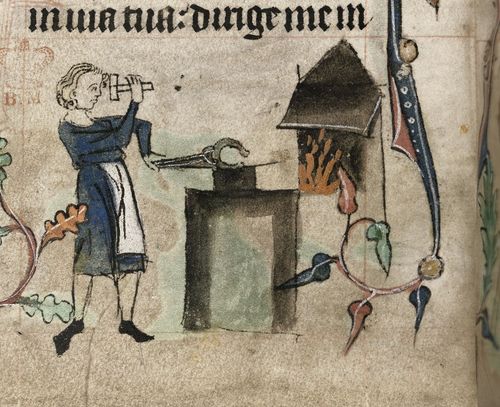 in uia tua: dirige me in